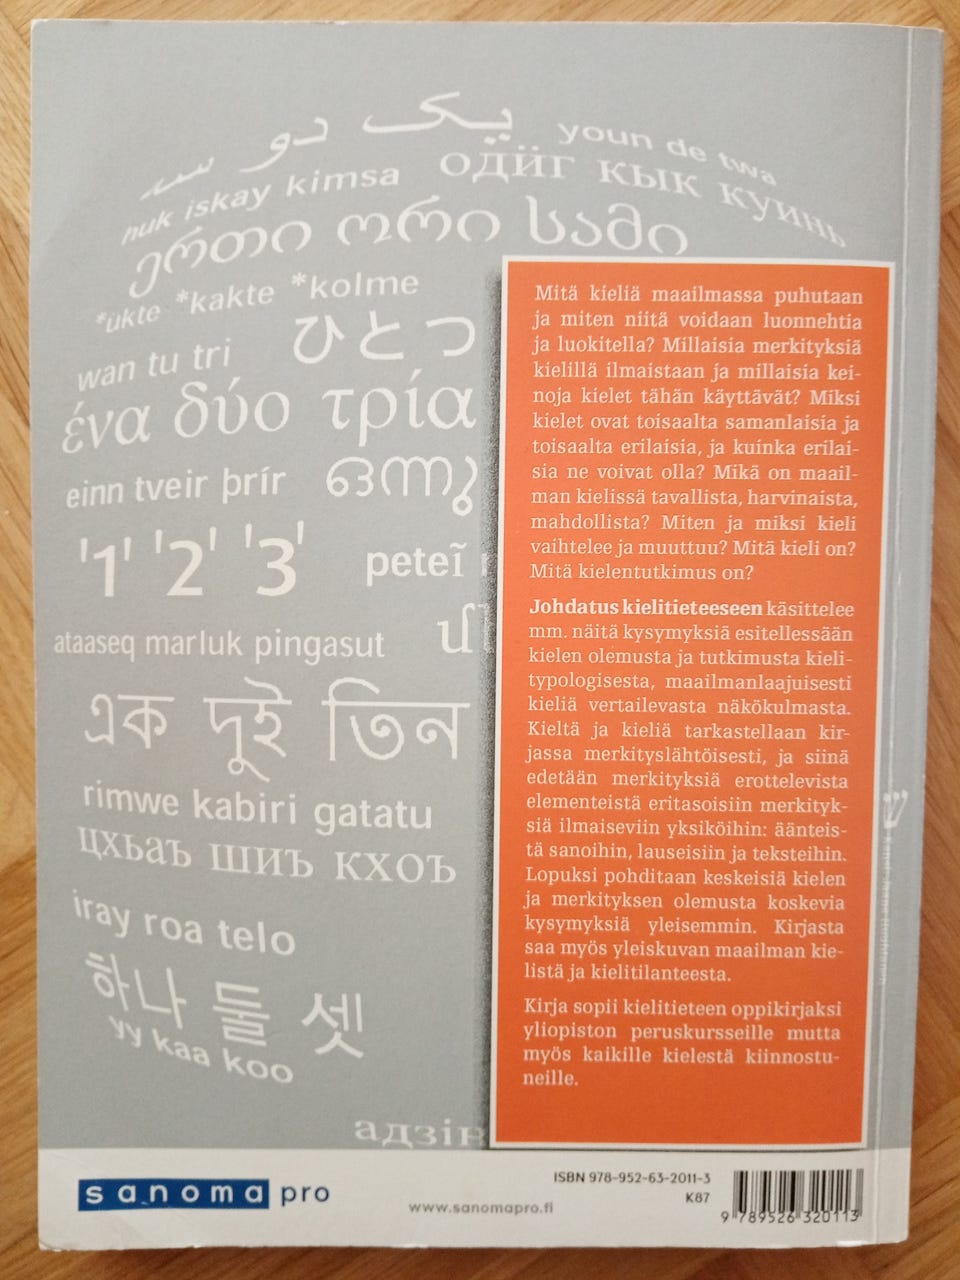 یک دو سه
youn de twa
huk iskay kimsa
одӥг кык куинь
ერთი ორი სამი
*ükte *kakte *kolme
wan tu tri
ひとつ
ένα δύο τρία
einn tveir þrír
ഒന്നു
'1' '2' '3'
peteĩ
ataaseq marluk pingasut
մ
এক দুই তিন
rimwe kabiri gatatu
цхьаъ шиъ кхоъ
iray roa telo
하나 둘 셋
yy kaa koo
адзін
Mitä kieliä maailmassa puhutaan
ja miten niitä voidaan luonnehtia
ja luokitella? Millaisia merkityksiä
kielillä ilmaistaan ja millaisia kei-
noja kielet tähän käyttävät? Miksi
kielet ovat toisaalta samanlaisia ja
toisaalta erilaisia, ja kuinka erilai-
sia ne voivat olla? Mikä on maail-
man kielissä tavallista, harvinaista,
mahdollista? Miten ja miksi kieli
vaihtelee ja muuttuu? Mitä kieli on?
Mitä kielentutkimus on?
Johdatus kielitieteeseen käsittelee
mm. näitä kysymyksiä esitellessään
kielen olemusta ja tutkimusta kieli-
typologisesta, maailmanlaajuisesti
kieliä vertailevasta näkökulmasta.
Kieltä ja kieliä tarkastellaan kir-
jassa merkityslähtöisesti, ja siinä
edetään merkityksiä erottelevista
elementeistä eritasoisiin merkityk-
siä ilmaiseviin yksiköihin: äänteis-
tä sanoihin, lauseisiin ja teksteihin.
Lopuksi pohditaan keskeisiä kielen
ja merkityksen olemusta koskevia
kysymyksiä yleisemmin. Kirjasta
saa myös yleiskuvan maailman kie-
listä ja kielitilanteesta.
Kirja sopii kielitieteen oppikirjaksi
yliopiston peruskursseille mutta
myös kaikille kielestä kiinnostu-
neille.
ש
sanoma pro
www.sanomapro.fi
ISBN 978-952-63-2011-3
K87
9 789526 320113